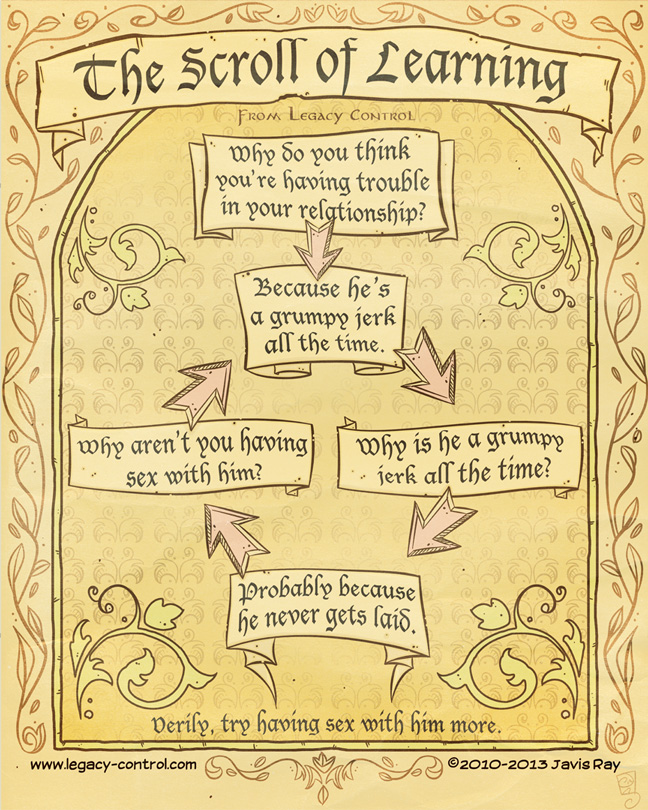 The Scroll of Learning
From Legacy Control
Why do you think
you're having trouble
in your relationship?
Because he's
a grumpy jerk
all the time.
Why aren't you having
sex with him?
Why is he a grumpy
jerk all the time?
Probably because
he never gets laid.
Verily, try having sex with him more.
www.legacy-control.com
©2010-2013 Javis Ray